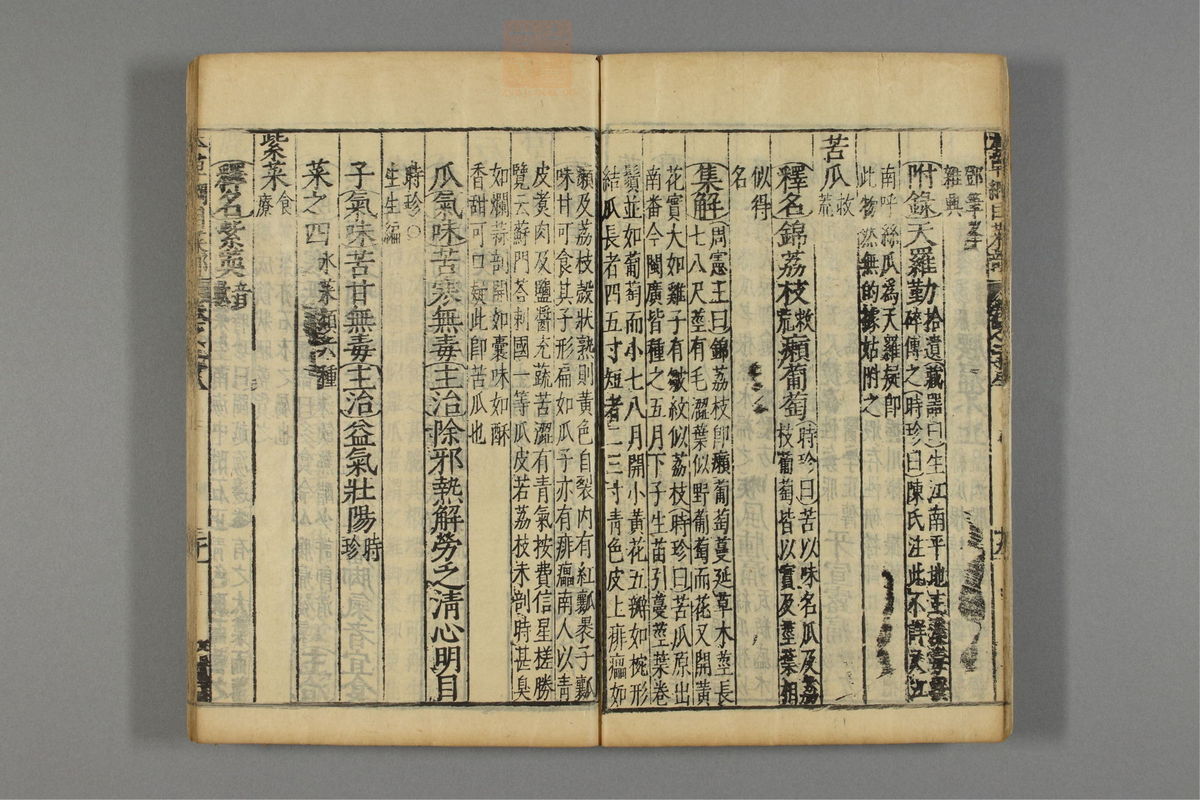 鄧筆峯
雜興
附錄天羅勒拾遺藏器曰生江南平地主溪毒
碎傳之時珍曰陳氏注此不詳又江
南呼絲瓜爲天羅疑即
此物然無的據姑附之
苦瓜救荒
釋名錦荔枝救荒癩葡萄時珍曰苦以味名瓜及荔
枝葡萄皆以實及莖葉相
似得
名
集解周憲王曰錦荔枝即癩葡萄蔓延草木莖長
七八尺莖有毛澀葉似野葡萄而花又開黃
花實大如雞子有皺紋似荔枝時珍曰苦瓜原出
南番今閩廣皆種之五月下子生苗引蔓莖葉卷
鬚並如葡萄而小七八月開小黃花五瓣如椀形
結瓜長者四五寸短者二三寸青色皮上痱㿔如
癩及荔枝殼狀熟則黃色自裂內有紅瓤裹子瓤
味甘可食其子形扁如瓜子亦有痱㿔南人以青
皮煑肉及鹽醬充蔬苦澀有青氣按費信星槎勝
覽云蘇門荅剌國一等瓜皮若荔枝未剖時甚臭
如爛蒜剖開如囊味如酥
香甜可口疑此即苦瓜也
瓜氣味苦寒無毒主治除邪熱解勞乏清心明目
時珍○
生生編
子氣味苦甘無毒主治益氣壯陽時
珍
菜之四水菜類六種
紫菜食
療
釋名紫䓹音